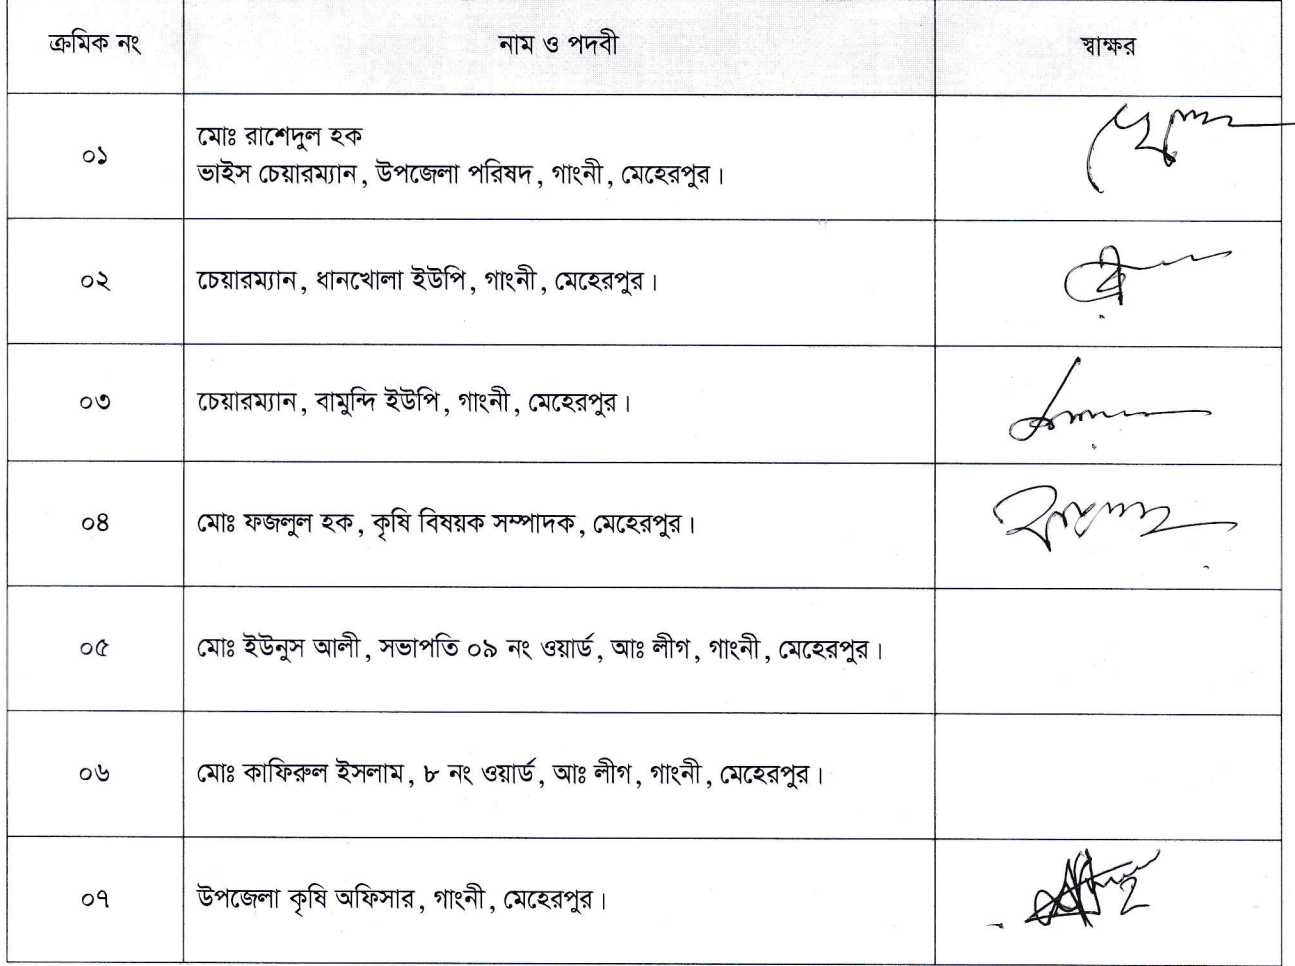 ক্রমিক নং নাম ও পদবী স্বাক্ষর
০১ মোঃ রাশেদুল হক
ভাইস চেয়ারম্যান, উপজেলা পরিষদ, গাংনী, মেহেরপুর।
০২ চেয়ারম্যান, ধানখোলা ইউপি, গাংনী, মেহেরপুর।
০৩ চেয়ারম্যান, বামুন্দি ইউপি, গাংনী, মেহেরপুর।
০৪ মোঃ ফজলুল হক, কৃষি বিষয়ক সম্পাদক, মেহেরপুর।
০৫ মোঃ ইউনুস আলী, সভাপতি ০৯ নং ওয়ার্ড, আঃ লীগ, গাংনী, মেহেরপুর।
০৬ মোঃ কাফিরুল ইসলাম, ৮ নং ওয়ার্ড, আঃ লীগ, গাংনী, মেহেরপুর।
০৭ উপজেলা কৃষি অফিসার, গাংনী, মেহেরপুর।